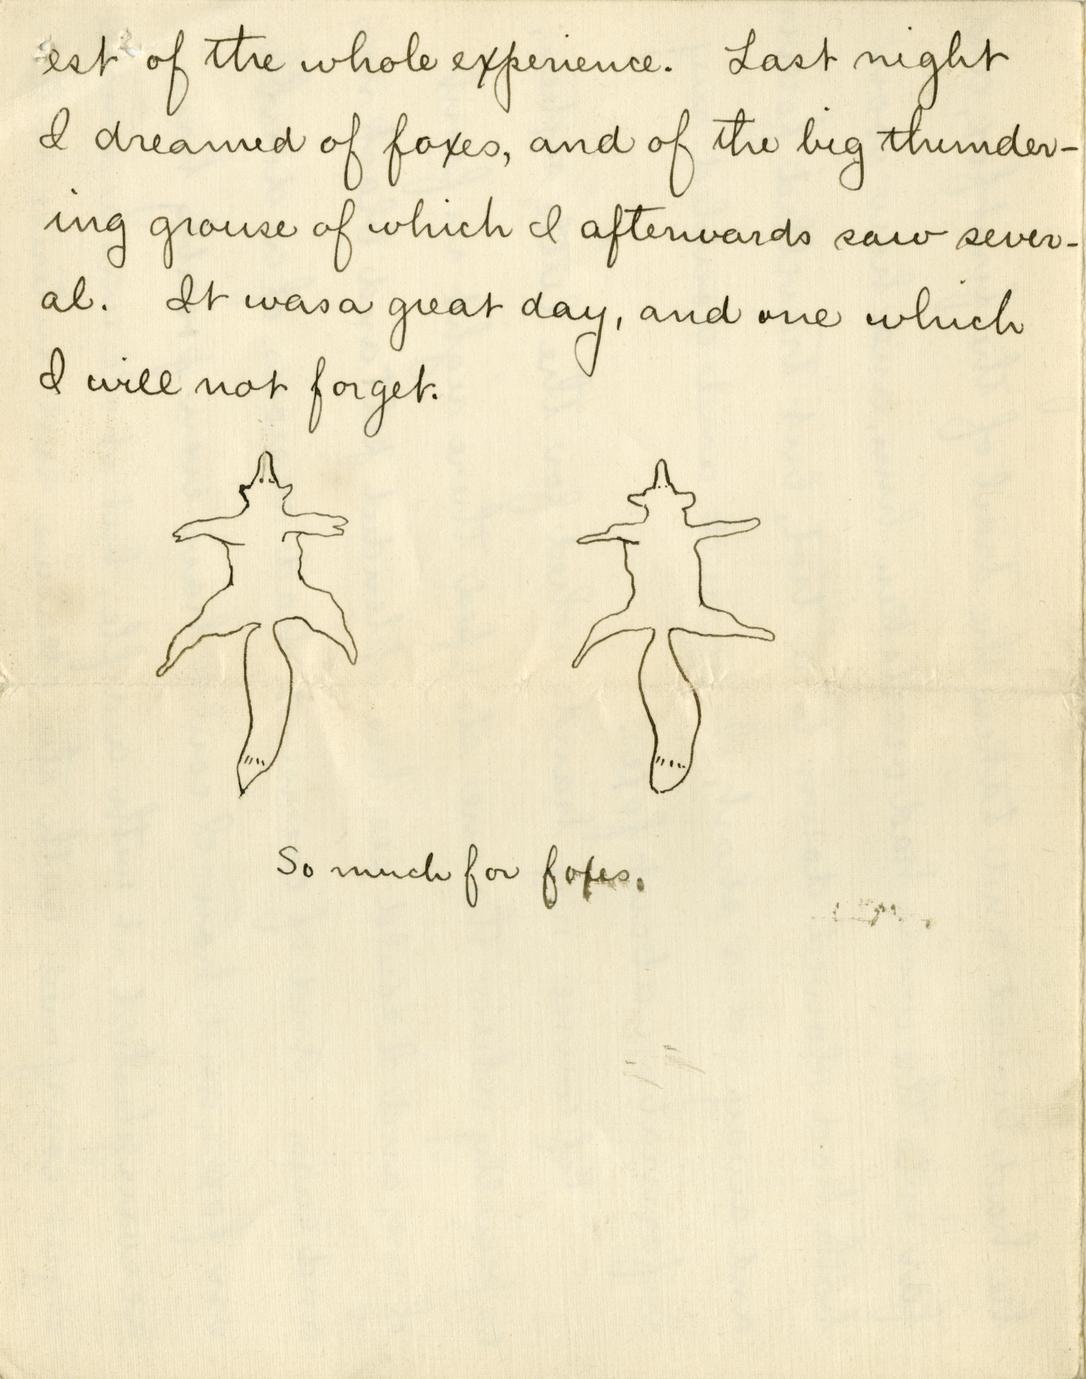 est of the whole experience. Last night
I dreamed of foxes, and of the big thunder-
ing grouse of which I afterwards saw sever-
al. It was a great day, and one which
I will not forget.
So much for foxes.